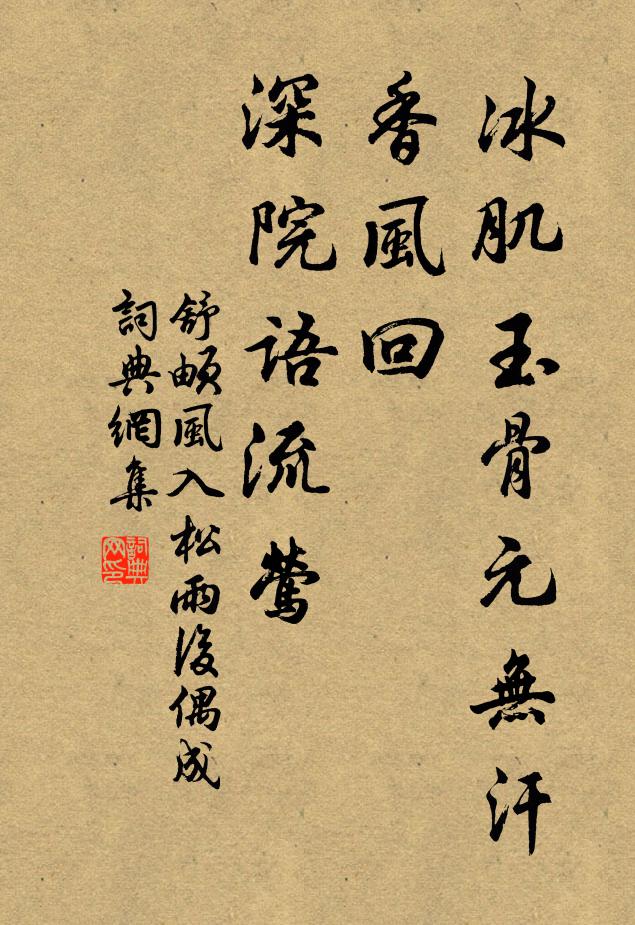 冰肌玉骨元無汗
香風回
深院語流鶯
舒頔風入松雨後偶成
詞典網集
詞典网印